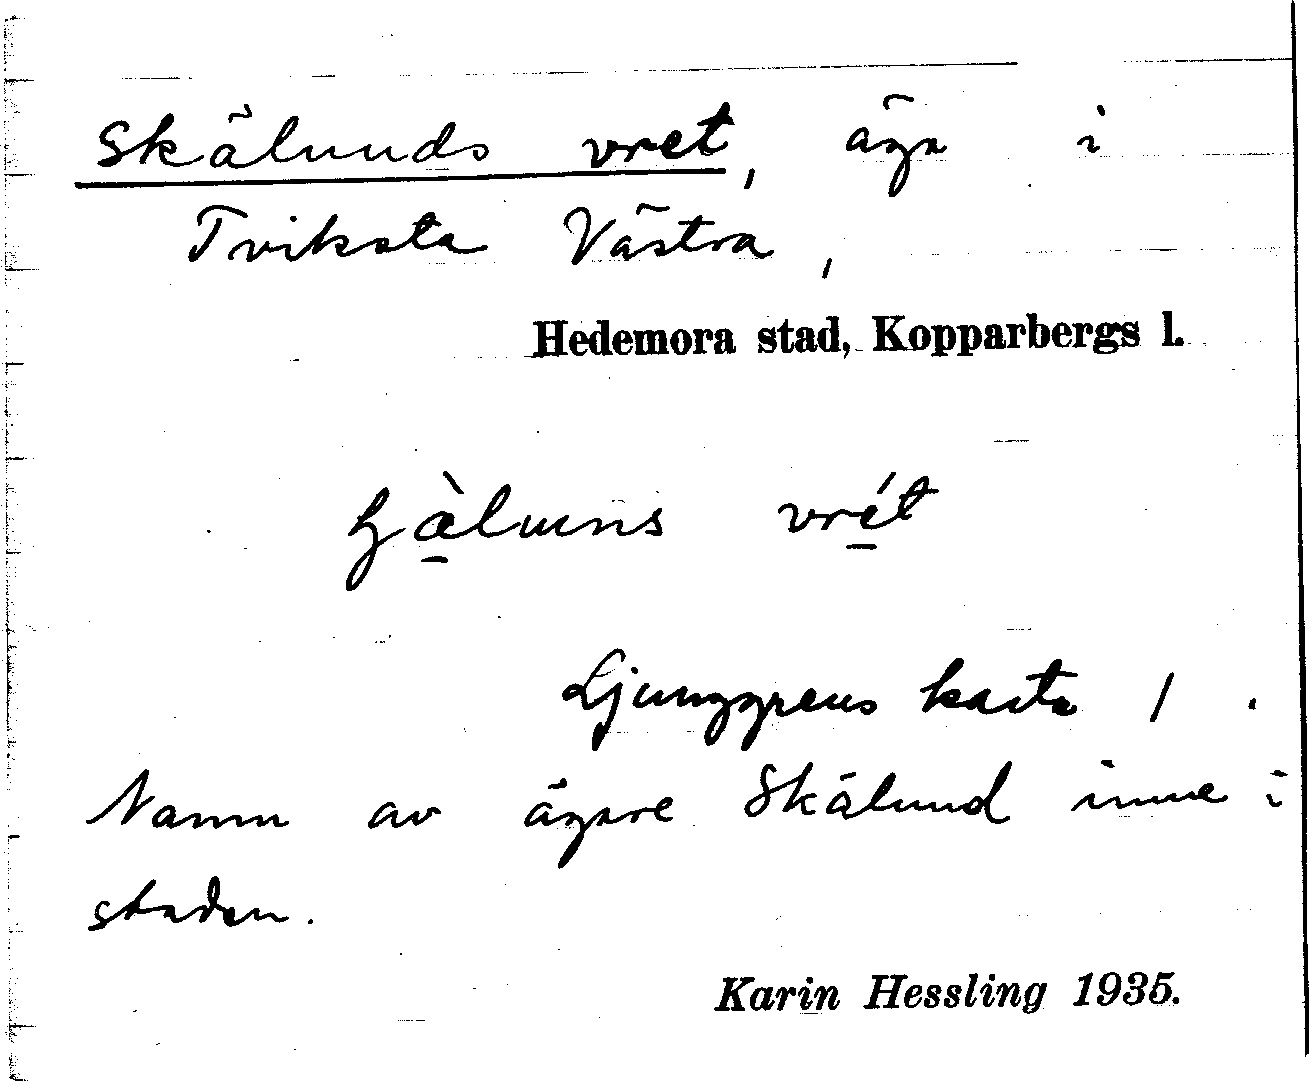 Skälunds vret, äga i
Tviksta Västra,
Hedemora stad, Kopparbergs l.
vrét
Ljunggrens karta 1.
Namn av ägare Skälund inne i
staden.
Karin Hessling 1935.